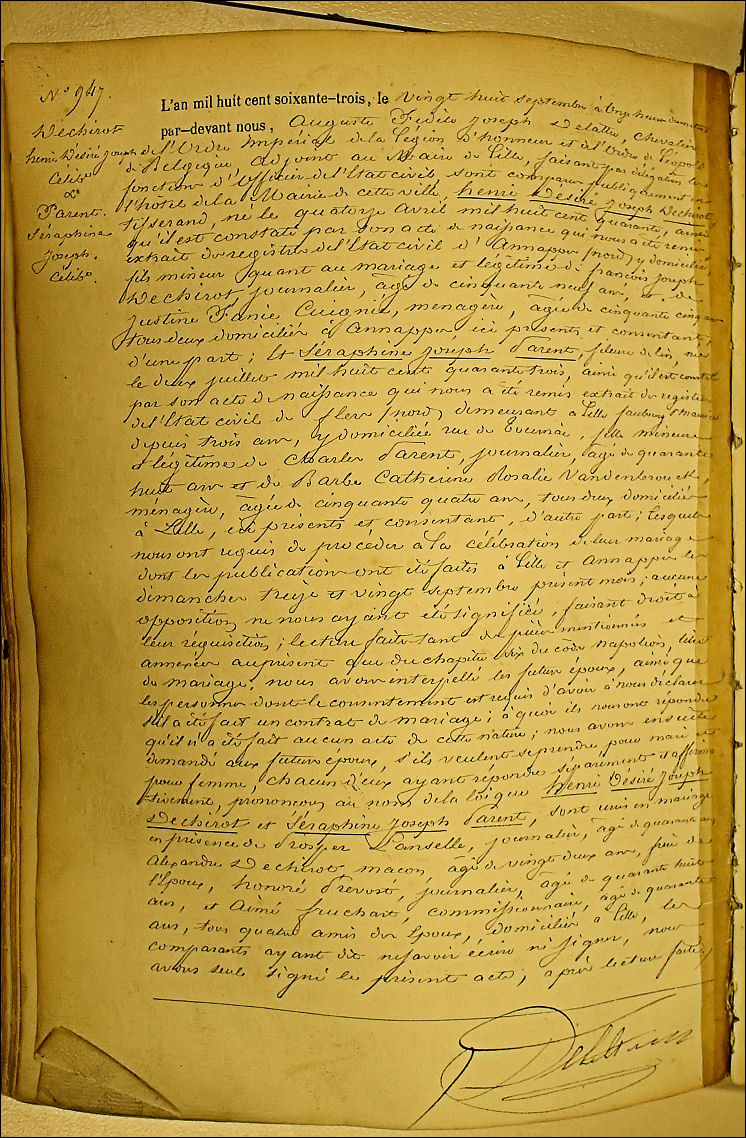 N° 947.
Dechirot
henri Désiré Joseph
Célib.
&
Parent.
Séraphine
Joseph.
Célib.
L'an mil huit cent soixante-trois, le vingt huit septembre à onze heures du matin
par-devant nous, Auguste Fidèle Joseph Delattre, chevalier
de l'Ordre Impérial de la Légion d'honneur et de l'Ordre de Léopold
de Belgique, adjoint au Maire de Lille, faisant par délégation les
fonctions d'Officier de l'Etat civil, sont comparus publiquement en
l'hôtel de la Mairie de cette ville, henri Désiré Joseph Dechirot,
tisserand, né le quatorze Avril mil huit cent quarante, ainsi
qu'il est constaté par son acte de naissance qui nous a été remis
extrait du registre de l'Etat civil d'Annappes (nord) y domicilié
fils mineur quant au mariage et légitime de françois Joseph
Dechirot, journalier, âgé de cinquante neuf ans, et de
Justine ménagère, âgée de cinquante cinq ans
tous deux domiciliés à Annappes ici présents et consentants,
d'une part ; Et Séraphine Joseph Parent, fileuse de lin, née
le deux juillet mil huit cent quarante trois, ainsi qu'il est constaté
par son acte de naissance qui nous a été remis extrait du registre
de l'Etat civil de flers (nord) demeurant à Lille faubourg St Maurice
depuis trois ans, y domiciliée rue de Tournai, fille mineure
et légitime de Charles Parent, journalier, âgé de quarante
huit ans et de Barbe Catherine Rosalie Vandenbrouck,
ménagère, âgée de cinquante quatre ans, tous deux domiciliés
à Lille, ici présents et consentant, d'autre part ; lesquels
nous ont requis de procéder à la célébration de leur mariage
dont les publications ont été faites à Lille et Annappes les
dimanches treize et vingt septembre présent mois ; aucune
opposition ne nous ayant été signifiée, faisant droit à
leur réquisition ; lecture faite tant des pièces mentionnées et
annexées au présent que du chapitre six du code Napoléon, titre
du mariage, nous avons interpellé les futurs époux, ainsi que
les personnes dont le consentement est requis d'avoir à nous déclarer
s'il a été fait un contrat de mariage ; à quoi ils nous ont répondu
qu'il n'a été fait aucun acte de cette nature ; nous avons ensuite
demandé aux futurs époux, s'ils veulent se prendre pour mari et
pour femme, chacun d'eux ayant répondu séparément et affirma
tivement, prononçons au nom de la loi que henri Désiré Joseph
Dechirot et Séraphine Joseph Parent, sont unis en mariage
en présence de Prosper Lanselle, journalier, âgé de quarante ans
Alexandre Dechirot maçon, âgé de vingt deux ans, frère de
l'Epoux, honoré Prevost, journalier, âgé de quarante huit
ans, et Aimé fruchart, commissionnaire, âgé de quarante
ans, tous quatre amis des Epoux, domiciliés à Lille, les
comparants ayant dit ne savoir écrire ni signer, nous
avons seuls signé le présent acte, après lecture faite ./